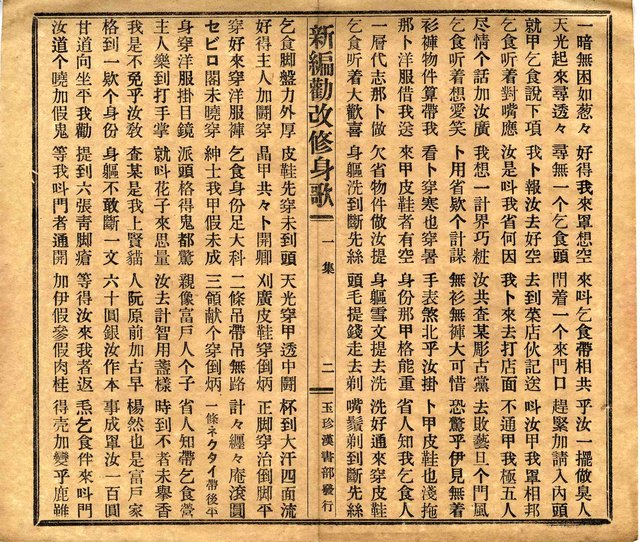 一暗無困如葱々 好得我來罩想空 來呌乞食帶相共 乎汝一擺做臭人
天光起來尋透々 尋無一个乞食頭 門着一个來門口 趕緊加請入內頭
就甲乞食說下項 我卜報汝去好空 去到菜店伙記送 呌汝甲我單相邦
乞食听着對嘴應 汝是呌我省何因 我卜來去打店面 不通甲我極五人
尽情个話加汝廣 我想一計界巧粧 汝共查某彫古黨 去敗藝旦个門風
乞食听着想愛笑 卜用省欵个計謀 無衫無褲大可惜 恐驚乎伊見無着
衫褲物件算帶我 看卜穿寒也穿暑 手表煞北乎汝掛 卜甲皮鞋也淺拖
那卜洋服借我送 來甲皮鞋者有空 身份那甲格能重 省人知我乞食人
一層代志那卜做 欠省物件做汝提 身軀雪文提去洗 洗好通來穿皮鞋
乞食听着大歡喜 身軀洗到斷先絲 頭毛提錢走去剃 嘴鬚剃到斷先絲
新編勸改修身歌 一集 二 玉珍漢書部發行
乞食脚盤力外厚 皮鞋先穿未到頭 天光穿甲透中鬪 杯到大汗四面流
好得主人加鬪穿 晶甲共々卜開卿 刈廣皮鞋穿倒炳 正脚穿治倒脚平
穿好來穿洋服褲 乞食身份足大科 二條吊帶吊無路 計々纏々庵滾圓
セビロ閣未曉穿 紳士我甲假未成 三領献个穿倒炳 一條ネクタイ帶後平
身穿洋服掛目鏡 派頭格得鬼都驚 親像富戶人个子 省人知帶乞食營
主人樂到打手掌 就呌花子來思量 汝去計智用盞樣 時到不者未舉香
我是不免乎汝敎 查某是我上賢貓 人阮原前加古早 楊然也是富戶家
格到一欵个身份 身軀不敢斷一文 六十圓銀汝作本 事成單汝一百圓
甘道向坐平我勸 提到六張靑脚瘡 等得汝來我者返 炁乞食伴來呌門
汝道个曉加假鬼 等我呌門者通開 加伊假參假肉桂 得壳加變乎鹿雖